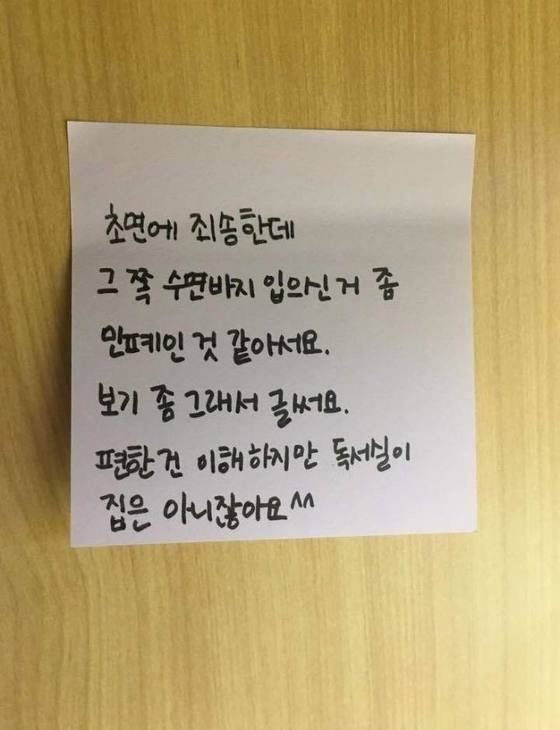 초면에 죄송한데
그 쪽 수면바지 입으신거 좀
민폐인 것 같아서요.
보기 좀 그래서 글써요.
편한건 이해하지만 독서실이
집은 아니잖아요^^